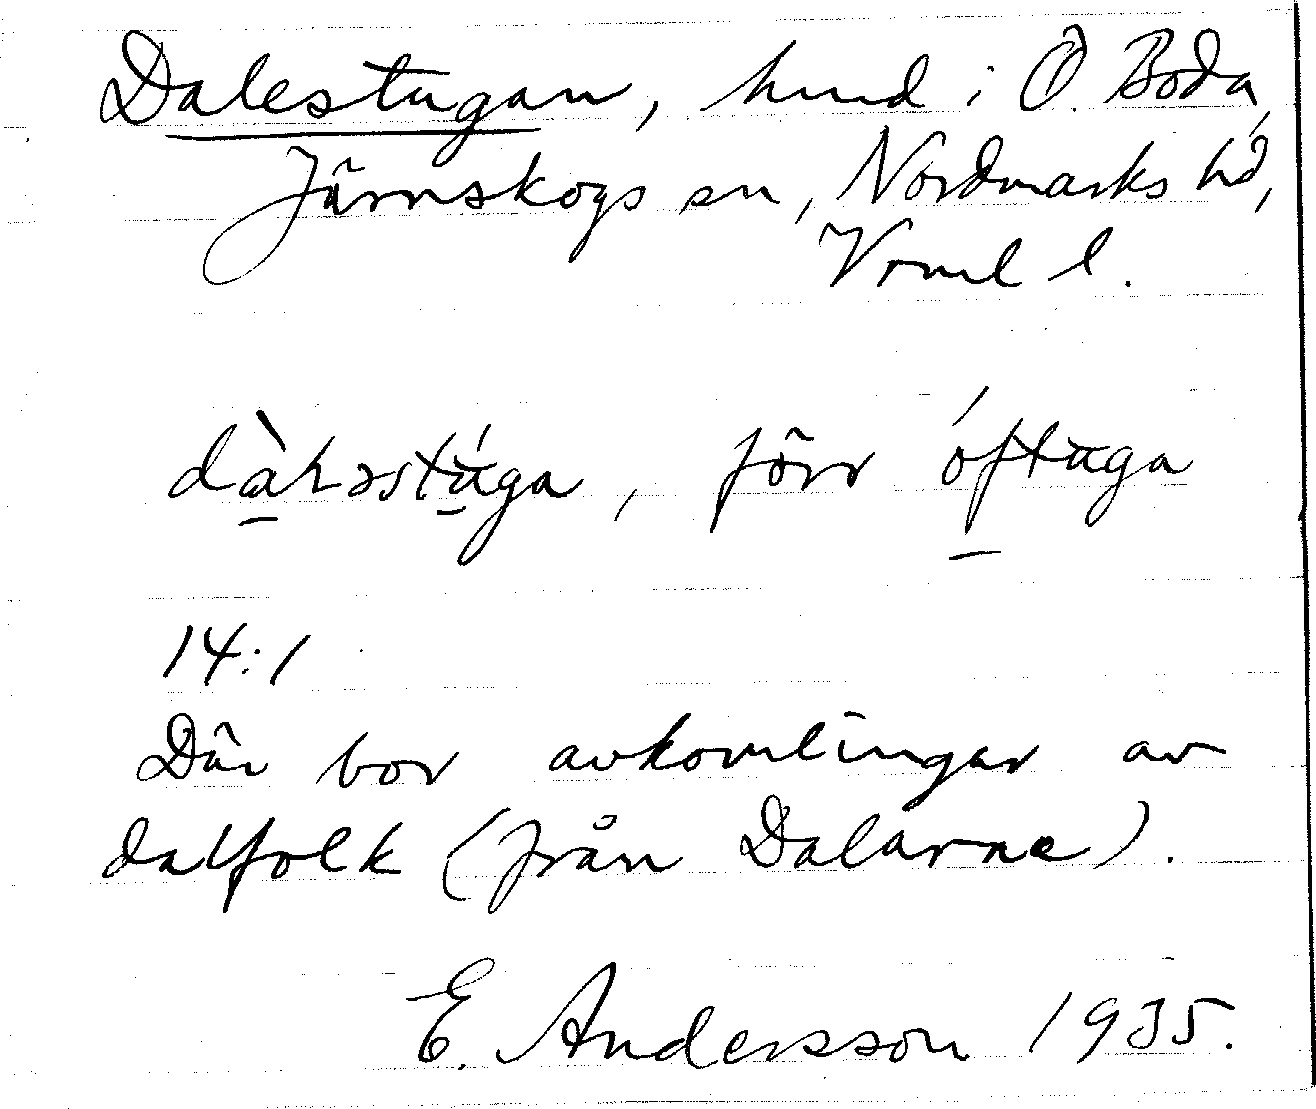 Dalestugan, hmd i Ö. Boda,
Järnskogs sn, Nordmarks hd,
Vrml l.
dàɫəstúga, förr óftuga
14:1
Där bor avkomlingar av
dalfolk (från Dalarne).
E. Andersson 1935.